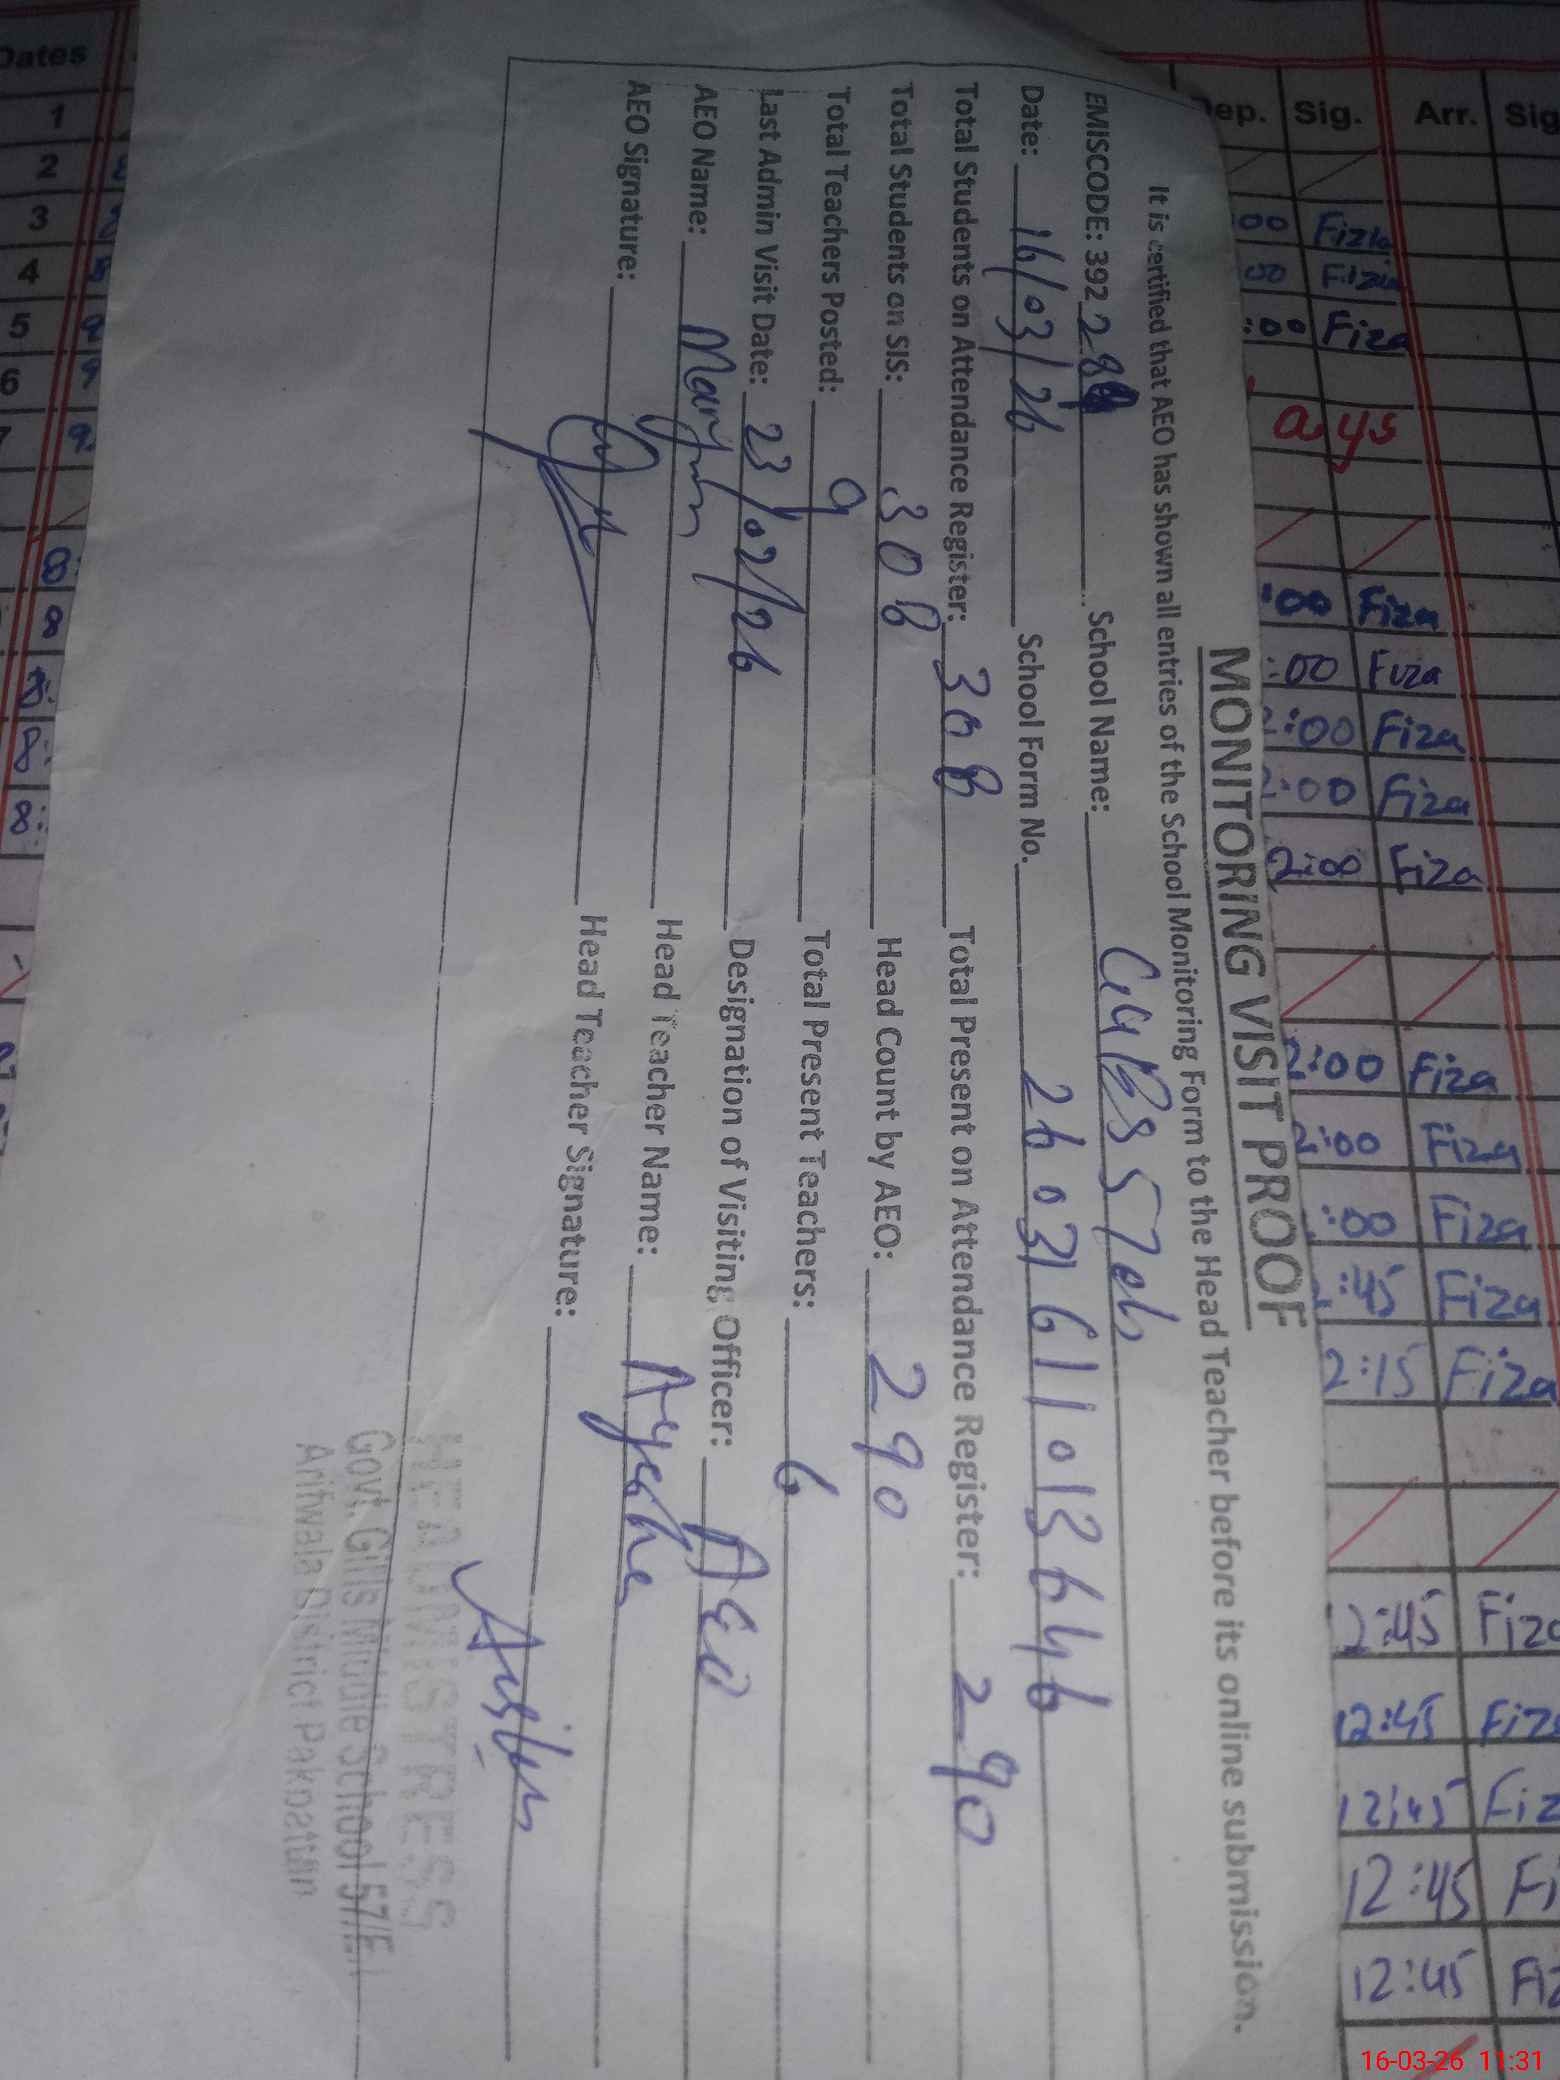 MONITORING VISIT PROOF
It is certified that AEO has shown all entries of the School Monitoring Form to the Head Teacher before its online submission.
EMISCODE: 392 28 School Name:
Date: 16/03/26 School Form No. 26031611013646
Total Students on Attendance Register: 308 Total Present on Attendance Register: 290
Total Students on SIS: 308 Head Count by AEO: 290
Total Teachers Posted: 9 Total Present Teachers: 6
Last Admin Visit Date: 23/02/26 Designation of Visiting Officer: AEO
AEO Name: Maryam Head Teacher Name: Ayesha
AEO Signature: Head Teacher Signature:
HEADMISTRESS
Govt. Girls Middle School 57/E
Arifwala District Pakpattan
Dates
1
2
3
4
5
6
7
Dep. Sig. Arr. Sig
:00 Fiza
00 Fiza
:00 Fiza
:00 Fiza
:00 Fiza
:00 Fiza
:00 Fiza
2:00 Fiza
2:00 Fiza
2:00 Fiza
:00 Fiza
:45 Fiza
2:15 Fiza
2:45 Fiza
12:45 Fiz
12:45 Fiz
12:45 Fi
12:45 Fi
16-03-26 11:31